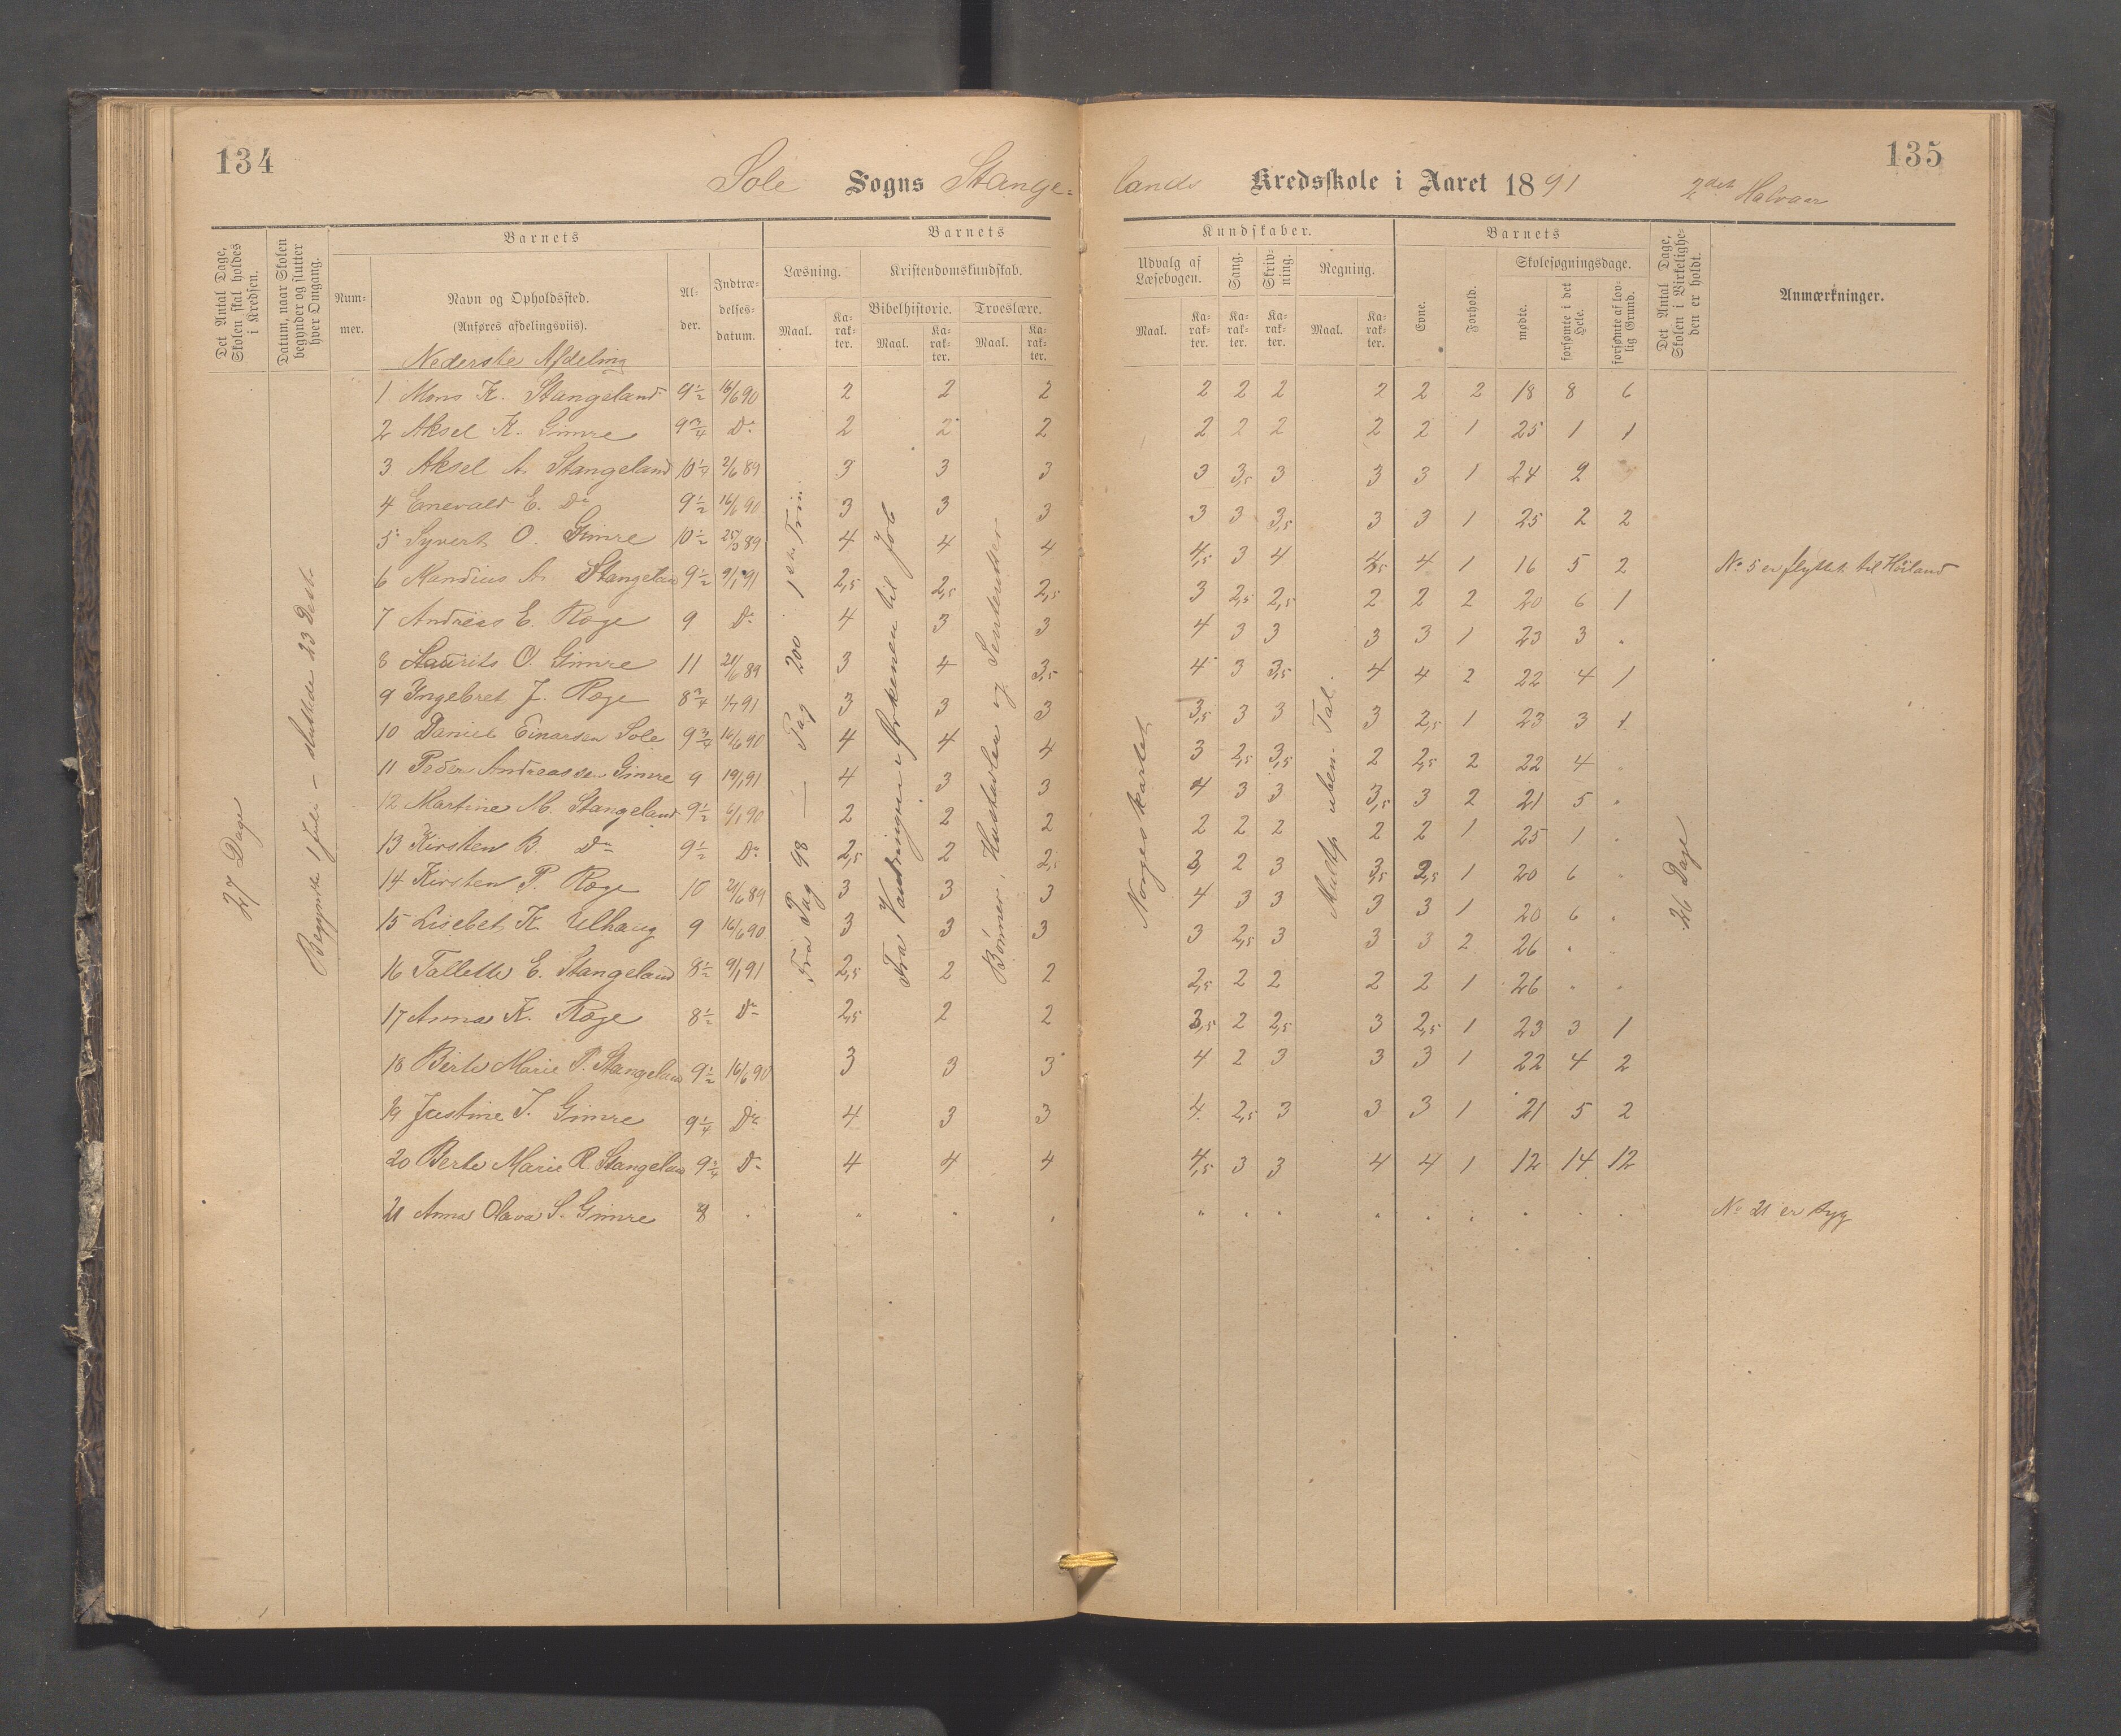 134
135
Sole Sogns Stange- lands Kredsskole i Aaret 1891 2det Halvaar
Det Antal Dage, Skolen skal holdes i Kredsen.
Datum, naar Skolen begynder og slutter hver Omgang.
Barnets
Nummer.
Navn og Opholdssted. (Anføres afdelingsviis).
Alder.
Indtrædelsesdatum.
Barnets Kundskaber.
Læsning.
Maal.
Karakter.
Kristendomskundskab.
Bibelhistorie.
Maal.
Karakter.
Troeslære.
Maal.
Karakter.
Udvalg af Læsebogen.
Maal.
Karakter.
Sang.
Karakter.
Skrivning.
Karakter.
Regning.
Maal.
Karakter.
Barnets
Evne.
Forhold.
Skolesøgningsdage.
mødte.
forsømte i det Hele.
forsømte af lovlig Grund.
Det Antal Dage, Skolen i Virkeligheden er holdt.
Anmærkninger.
Nederste Afdeling
27 Dage
Begyndte 1 Juli - sluttede 23 Decbr
Fra Pag 98 — Pag 200 1ste Trin
Fra Vandringen i Ørkenen til Job
Bønner, Hustavlen og Sentenser
Norgeskartet
Multip. uben. Tal.
26 Dage
1 Mons K. Stangeland 9½ 16/6 90 2 2 2 2 2 2 2 2 2 18 8 6
2 Aksel K. Gimre 9¾ Do 2 2 2 2 2 2 2 2 1 25 1 1
3 Aksel A. Stangeland 10¼ 2/6 89 3 3 3 3 3,5 3 3 3 1 24 2
4 Enevald E. Do 9½ 16/6 90 3 3 3 3 3 3,5 3 3 1 25 2 2
5 Syvert O. Gimre 10½ 25/3 89 4 4 4 4,5 3 4 4,5 4 1 16 5 2 No 5 er flyttet til Höiland
6 Nandius A. Stangeland 9½ 9/1 91 2,5 2,5 2,5 3 2,5 2,5 2 2 2 20 6 1
7 Andreas E. Ræge 9 Do 4 3 3 4 3 3 3 3 1 23 3 "
8 Laurits O. Gimre 11 21/6 89 3 4 3,5 4 3 3,5 4 4 2 22 4 1
9 Ingebret J. Ræge 8¾ 1/7 91 3 3 3 3,5 3 3 3 2,5 1 23 3 1
10 Daniel Einarsen Sole 9¾ 16/6 90 4 4 4 3 2,5 3,5 2 2,5 2 22 4 "
11 Peder Andreassen Gimre 9 19/1 91 4 3 3 4 3 3 3,5 3 2 21 5 "
12 Martine M. Stangeland 9½ 6/1 90 2 2 2 2 2 2 2 2 1 25 1 "
13 Kirsten B. Do 9½ Do 2,5 2 2,5 3 2 3 3,5 2,5 1 20 6 "
14 Kirsten P. Ræge 10 21/6 89 3 3 3 4 3 3 3 3 1 20 6 "
15 Lisebet K. Ulhaug 9 16/6 90 3 3 3 3 2,5 3 3 3 2 26 " "
16 Tallette E. Stangeland 8½ 9/1 91 2,5 2 2 2,5 2 2 2 2 1 26 " "
17 Anna K. Ræge 8½ Do 2,5 2 2 3,5 2 2,5 3 2,5 1 23 3 1
18 Berte Marie P. Stangeland 9½ 16/6 90 3 3 3 4 2 3 3 3 1 22 4 2
19 Justine T. Gimre 9¼ Do 4 3 3 4 2,5 3 3 3 1 21 5 2
20 Berte Marie R. Stangeland 9¾ Do 4 4 4 4,5 3 3 4 4 1 12 14 12
21 Anna Olava S. Gimre 8 " " " " " " " " " " " " " No 21 er syg